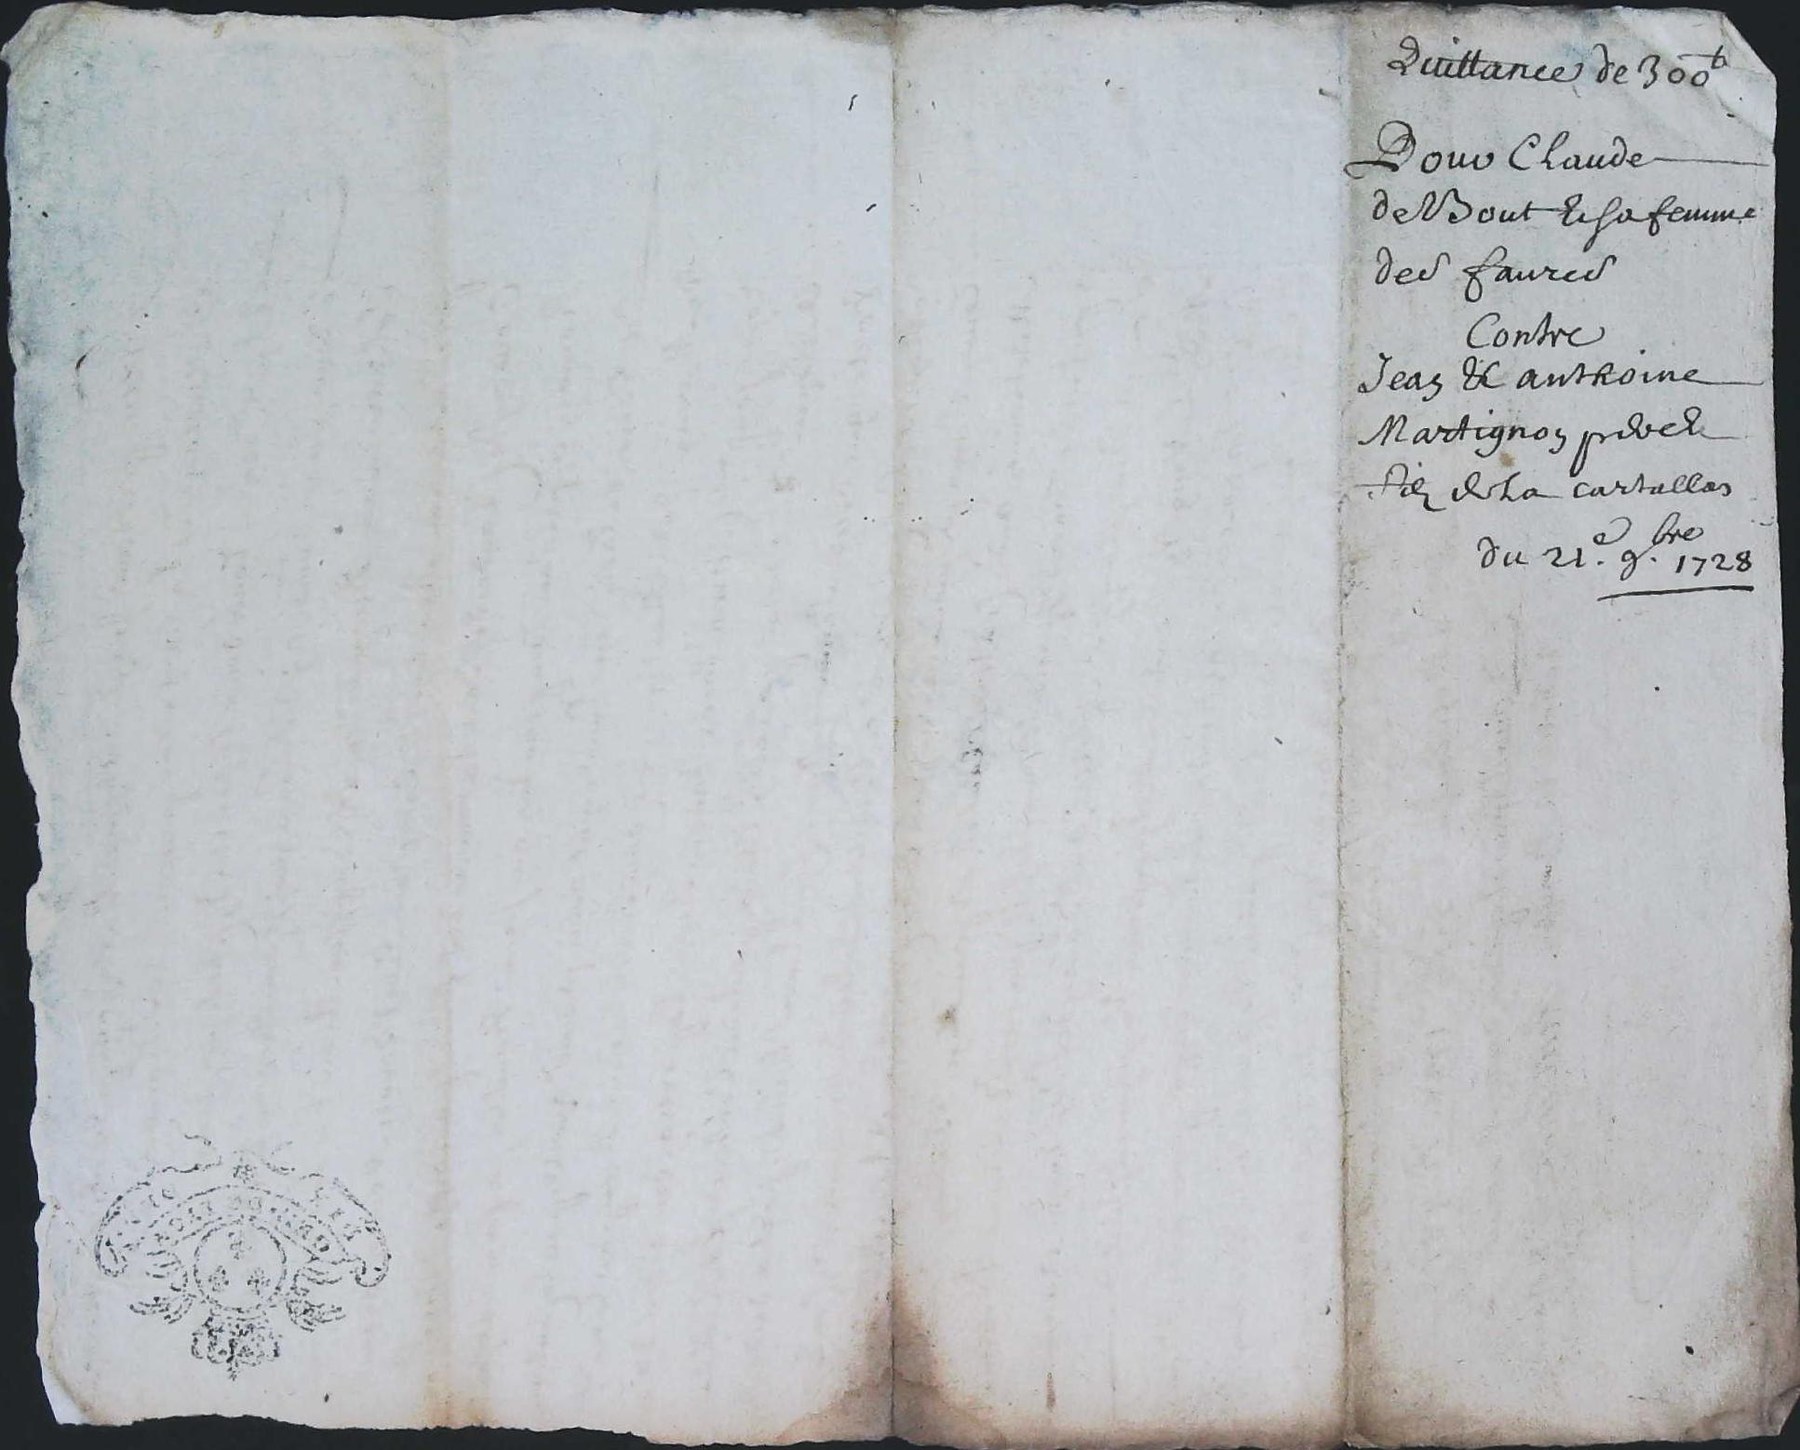 Quittance de 300 lt
Pour Claude
de Bout & sa femme
des faures
Contre
Jean & anthoine
Martignon pere &
fils de la cartallas
du 21.e 9.bre 1728